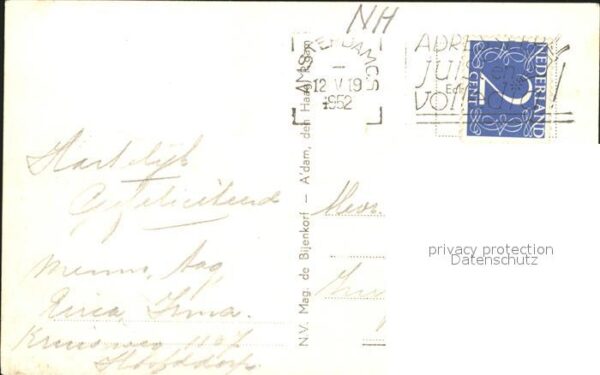 NH
AMSTERDAM C.S
12 V 19
1952
ADRES
JUIST en
VOLLEDIG!
NEDERLAND
2
CENT
Hartelijk
Gefeliciteerd
Menno, Aag
Erica Irma.
Kruisweg 1107
Hoofddorp
N.V. Mag. de Bijenkorf – A'dam, den Haag, R'dam
privacy protection
Datenschutz